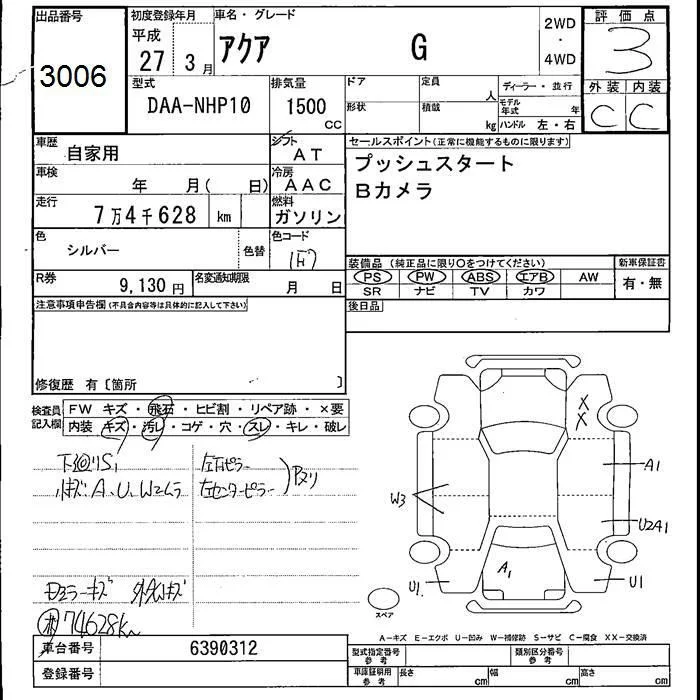 出品番号
3006
初度登録年月
平成
27 3 月
車名・グレード
アクア G
2WD
・
4WD
評価点
3
外装 内装
C C
型式
DAA-NHP10
排気量
1500
CC
ドア
定員
人
形状
積載
kg
ディーラー・並行
モデル年式 年
ハンドル 左・右
車歴
自家用
シフト
AT
車検
年 月( 日)
冷房
AAC
走行
7万4千628 km
燃料
ガソリン
色
シルバー
色替
色コード
1F7
R券
9,130 円
名変通知期限
月 日
セールスポイント(正常に機能するものに限ります)
プッシュスタート
Bカメラ
装備品 (純正品に限り○をつけてください)
PS PW ABS エアB AW
SR ナビ TV カワ
新車保証書
有・無
後日品
注意事項申告欄(不具合内容等は具体的に記入して下さい)
修復歴 有〔箇所 〕
検査員記入欄
FW キズ・飛石・ヒビ割・リペア跡・×要
内装 キズ・汚レ・コゲ・穴・スレ・キレ・破レ
小キズ A、U、W2ムラ
左右ピラー
左センターピラー
Pヌリ
74628km
X
X
A1
W3
U2A1
A1
U1
U1
スペア
A-キズ E-エクボ U-凹み W-補修跡 S-サビ C-腐食 XX-交換済
車台番号
6390312
登録番号
型式指定番号
参考
類別区分番号
参考
車庫証明用
参考
長さ cm
幅 cm
高さ cm